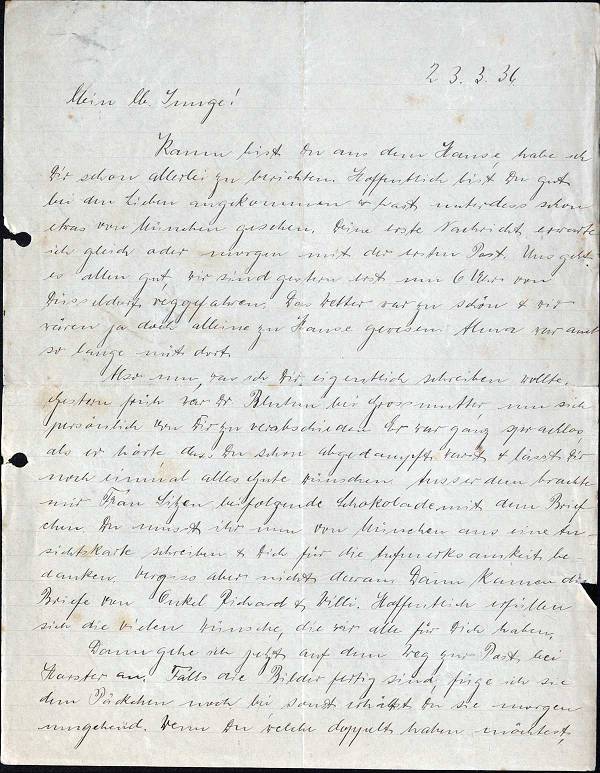 23.3.36.
Mein lb. Junge!
Kaum bist Du aus dem Hause, habe ich
Dir schon allerlei zu berichten. Hoffentlich bist Du gut
bei den Lieben angekommen & hast unterdess schon
etwas von München gesehen. Deine erste Nachricht erwarte
ich gleich oder morgen mit der ersten Post. Uns geht
es allen gut, wir sind gestern erst um 6 Uhr von
Düsseldorf weggefahren. Das Wetter war zu schön & wir
wären ja doch alleine zu Hause gewesen. Alma war auch
so lange mit dort.
Also nun, was ich Dir eigentlich schreiben wollte,
Gestern früh war Dr Blutun bei Grossmutter, um sich
persönlich von Dir zu verabschieden. Er war ganz sprachlos,
als er hörte das Du schon abgedampft warst & lässt Dir
noch einmal alles Gute wünschen. Ausserdem brachte
mir Frau beifolgende Schokolade mit dem Brief
chen. Du musst ihr nun von München aus eine An-
sichtskarte schreiben & Dich für die Aufmerksamkeit be
danken. Vergiss aber nicht daran. Dann kamen die
Briefe von Onkel Richard & Willi. Hoffentlich erfüllen
sich die vielen Wünsche, die wir alle für Dich haben.
Dann gehe ich jetzt auf dem Weg zur Post, bei
Harster an. Falls die Bilder fertig sind, füge ich sie
dem Päckchen noch bei sonst erhältst Du sie morgen
umgehend. Wenn Du welche doppelt haben möchtest,